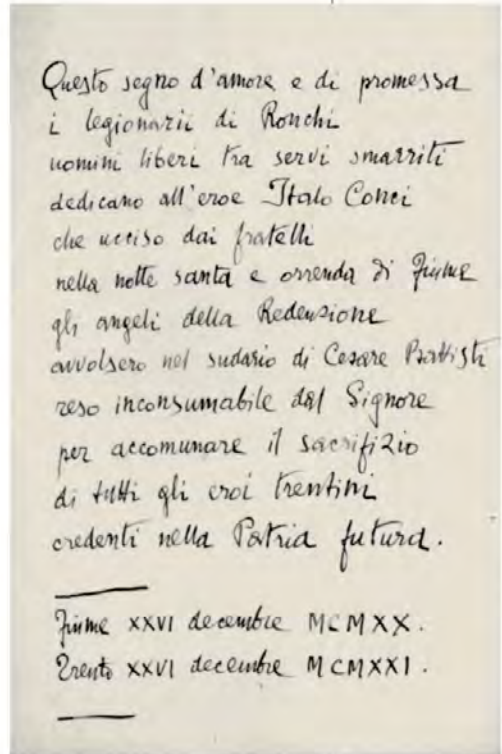 Questo segno d'amore e di promessa
i legionarii di Ronchi
uomini liberi tra servi smarriti
dedicano all'eroe Italo Conci
che ucciso dai fratelli
nella notte santa e orrenda di Fiume
gli angeli della Redenzione
avvolsero nel sudario di Cesare Battisti
reso inconsumabile dal Signore
per accomunare il sacrifizio
di tutti gli eroi trentini
credenti nella Patria futura.
Fiume XXVI decembre MCMXX.
Trento XXVI decembre MCMXXI.